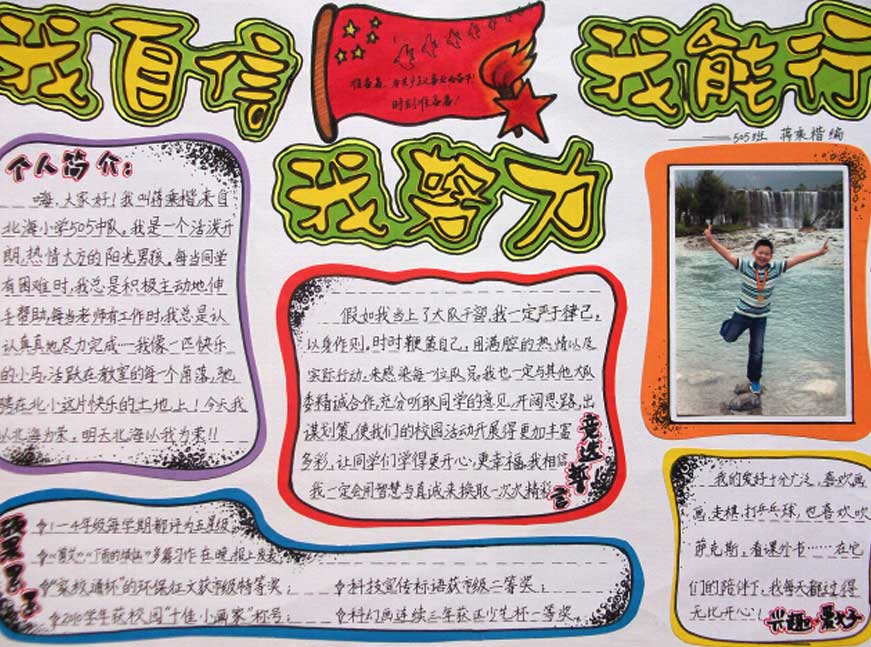 我自信
我能行
准备着，为共产主义事业而奋斗！
时刻准备着！
505班 蒋乘楷编
我努力
个人简介：
嗨，大家好！我叫蒋乘楷，来自
北海小学505中队。我是一个活泼开
朗，热情大方的阳光男孩。每当同学
有困难时，我总是积极主动地伸
手帮助，每当老师有工作时，我总是认
认真真地尽力完成……我像一匹快乐
的小马，活跃在教室的每一个角落，驰
骋在北小这片快乐的土地上！今天我
以北海为荣，明天北海以我为荣！！
假如我当上了大队干部，我一定严于律己，
以身作则。时时鞭策自己，用满腔的热情以及
实际行动，来感染每一位队员。我也一定与其他大队
委精诚合作，充分听取同学的意见，开阔思路，出
谋划策，使我们的校园活动开展得更加丰富
多彩，让同学们学得更开心，更幸福。我相信
我一定会用智慧与真诚来换取一次次精彩
竞选誓言
1—4年级每学期都评为五星级
多篇习作在晚报上发表
"家校循环"的环保征文获市级特等奖；
2010学年获校园"十佳小画家"称号；
科技宣传标语获市级二等奖；
科幻画连续三年获区少艺杯一等奖。
我的爱好十分广泛，喜欢画
画、走棋、打乒乓球，也喜欢吹
萨克斯，看课外书……在它
们的陪伴下，我每天都过得
无比开心！
兴趣爱好